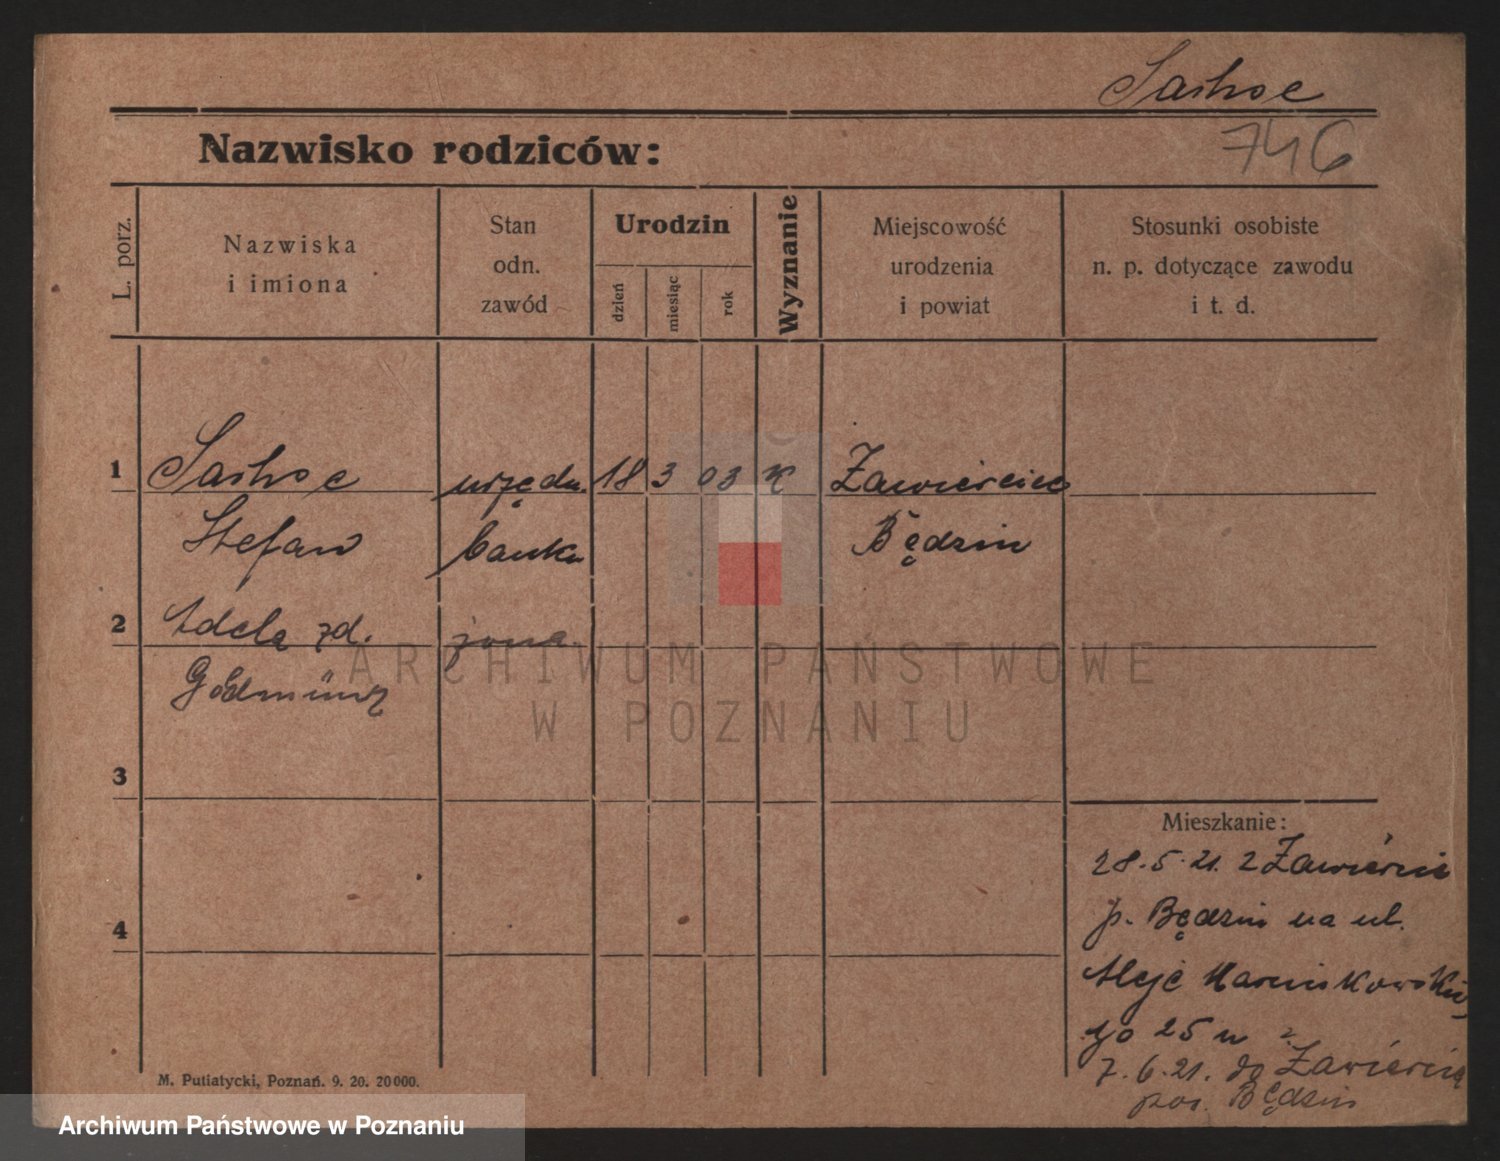 746
Nazwisko rodziców:
L. porz.
Nazwiska
i imiona
Stan
odn.
zawód
Urodzin
dzień
miesiąc
rok
Wyznanie
Miejscowość
urodzenia
i powiat
Stosunki osobiste
n. p. dotyczące zawodu
i t. d.
1
urzędn. 18 3 03 K Zawiercie
Stefan banku Będzin
2 Adela zd. żona
3
4
Mieszkanie:
28.5.21. z Zawiercie
p. Będzin na ul.
Aleje Marcinkowskie
go 25 u
7.6.21. do Zawiercia
pow. Będzin
M. Putiatycki, Poznań. 9. 20. 20000.
ARCHIWUM PAŃSTWOWE
W POZNANIU
Archiwum Państwowe w Poznaniu